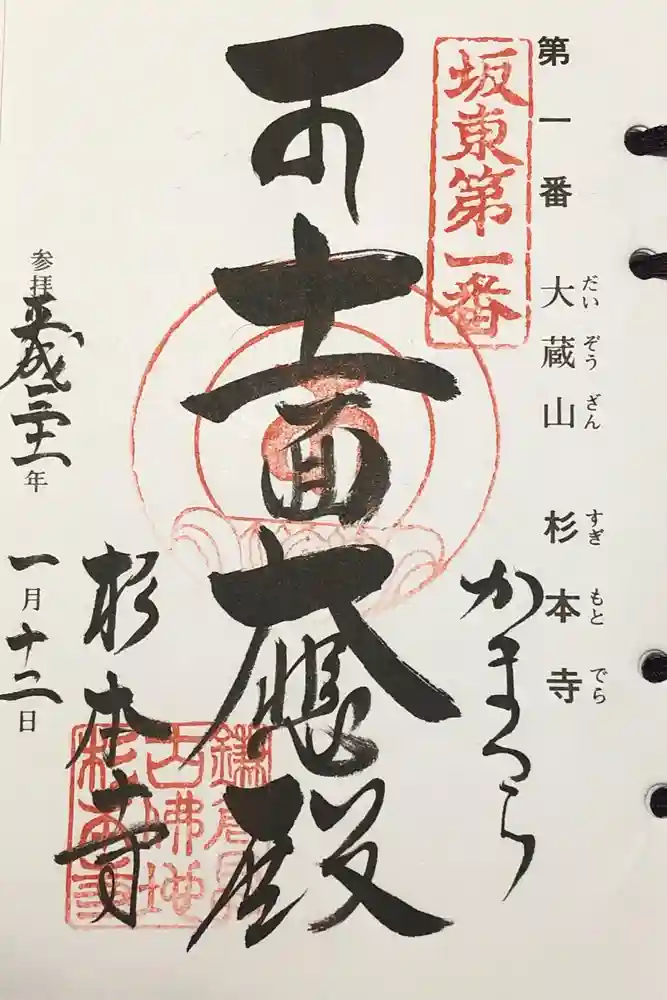 第一番 大蔵山 杉本寺
だい ぞう ざん すぎ もと でら
坂東第一番
かまくら
十一面大悲殿
杉本寺
参拝 平成三十一年 一月十二日